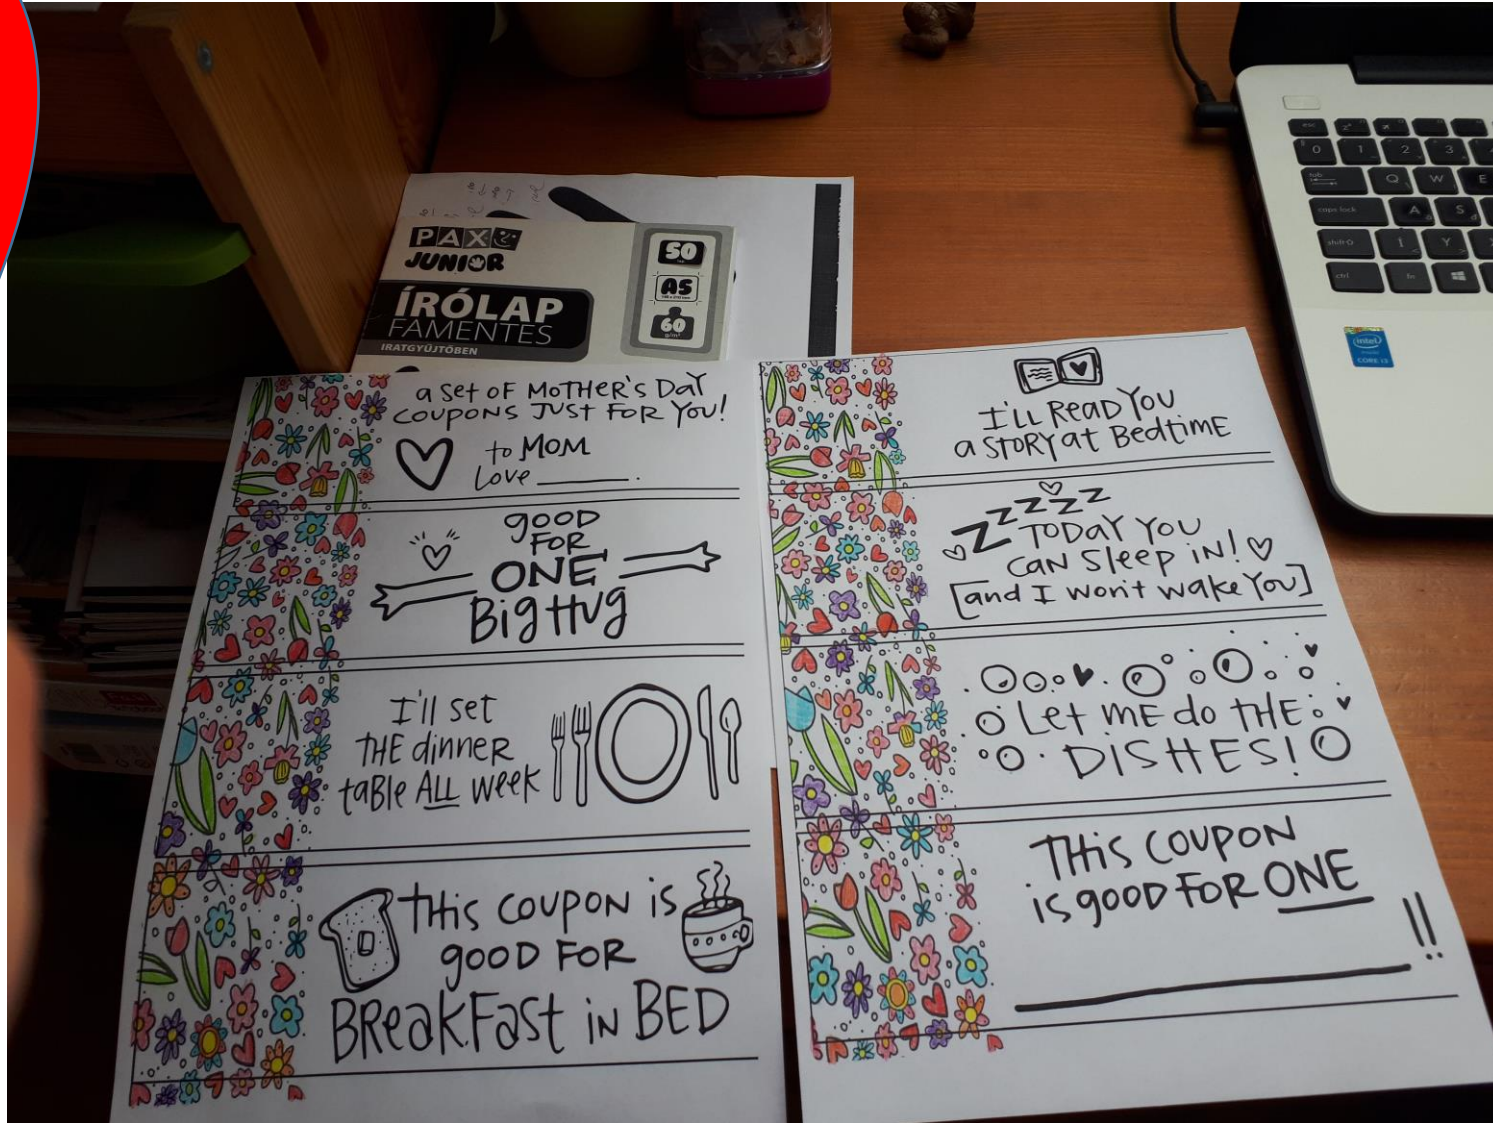 PAX
JUNIOR
ÍRÓLAP
FAMENTES
IRATGYŰJTŐBEN
50
A5
60
a set of MOTHER'S DAY
COUPONS JUST FOR YOU!
to MOM
Love ________.
good
FOR
ONE
Big Hug
I'll set
THE dinner
table ALL week
THis COUPON is
good FOR
BReakFast in BED
I'LL Read YOU
a STORY at Bedtime
ZZZZZZ
TODAY YOU
CAN Sleep in!
[and I won't wake You]
Let ME do THE
DISHES!
THis COUPON
is good FOR ONE
________!!
esc
0 1 2 3
tab
Q W E
caps lock
A S
shift
Í Y
ctrl fn
intel
CORE i3